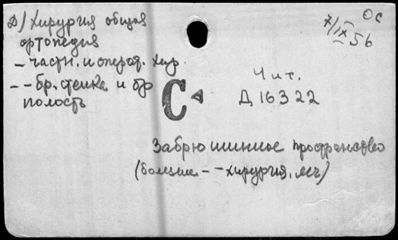 Д) Хирургия общая
ортопедия
— частн. и операт. хир.
— - бр. стенка и бр.
полость
Ос
7/IX 56
С
Чит.
Д 16322
Забрюшинное пространство
(болезни - - хирургия, леч)